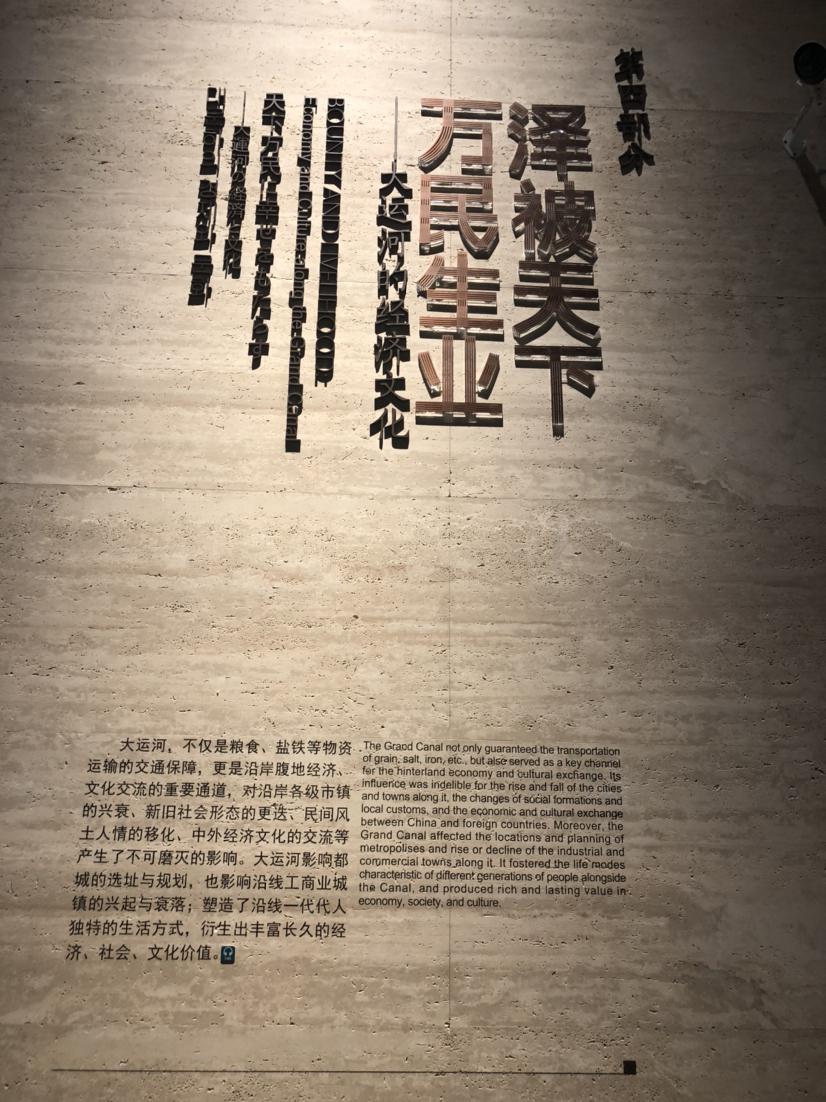 第四部分
泽被天下
万民生业
——大运河的经济文化
BOUNTY AND LIVELIHOOD:
Economy and Culture along the Grand Canal
大运河，不仅是粮食、盐铁等物资
运输的交通保障，更是沿岸腹地经济、
文化交流的重要通道，对沿岸各级市镇
的兴衰、新旧社会形态的更迭、民间风
土人情的移化、中外经济文化的交流等
产生了不可磨灭的影响。大运河影响都
城的选址与规划，也影响沿线工商业城
镇的兴起与衰落；塑造了沿线一代代人
独特的生活方式，衍生出丰富长久的经
济、社会、文化价值。
The Grand Canal not only guaranteed the transportation
of grain, salt, iron, etc., but also served as a key channel
for the hinterland economy and cultural exchange. Its
influence was indelible for the rise and fall of the cities
and towns along it, the changes of social formations and
local customs, and the economic and cultural exchange
between China and foreign countries. Moreover, the
Grand Canal affected the locations and planning of
metropolises and rise or decline of the industrial and
commercial towns along it. It fostered the life modes
characteristic of different generations of people alongside
the Canal, and produced rich and lasting value in
economy, society, and culture.